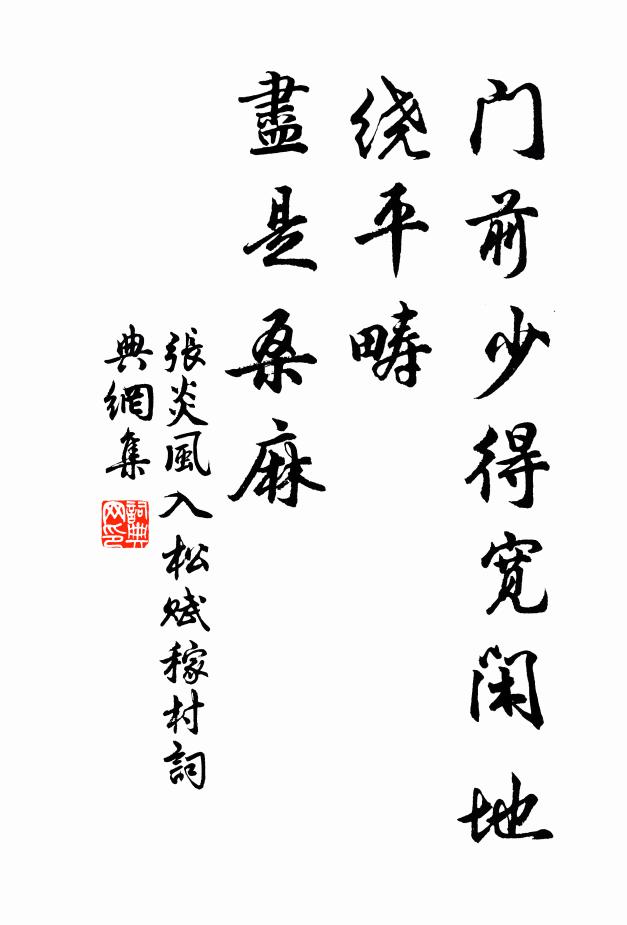 门前少得宽闲地
绕平畴
盡是桑麻
張炎風入松赋稼村詞
典網集
詞典网印